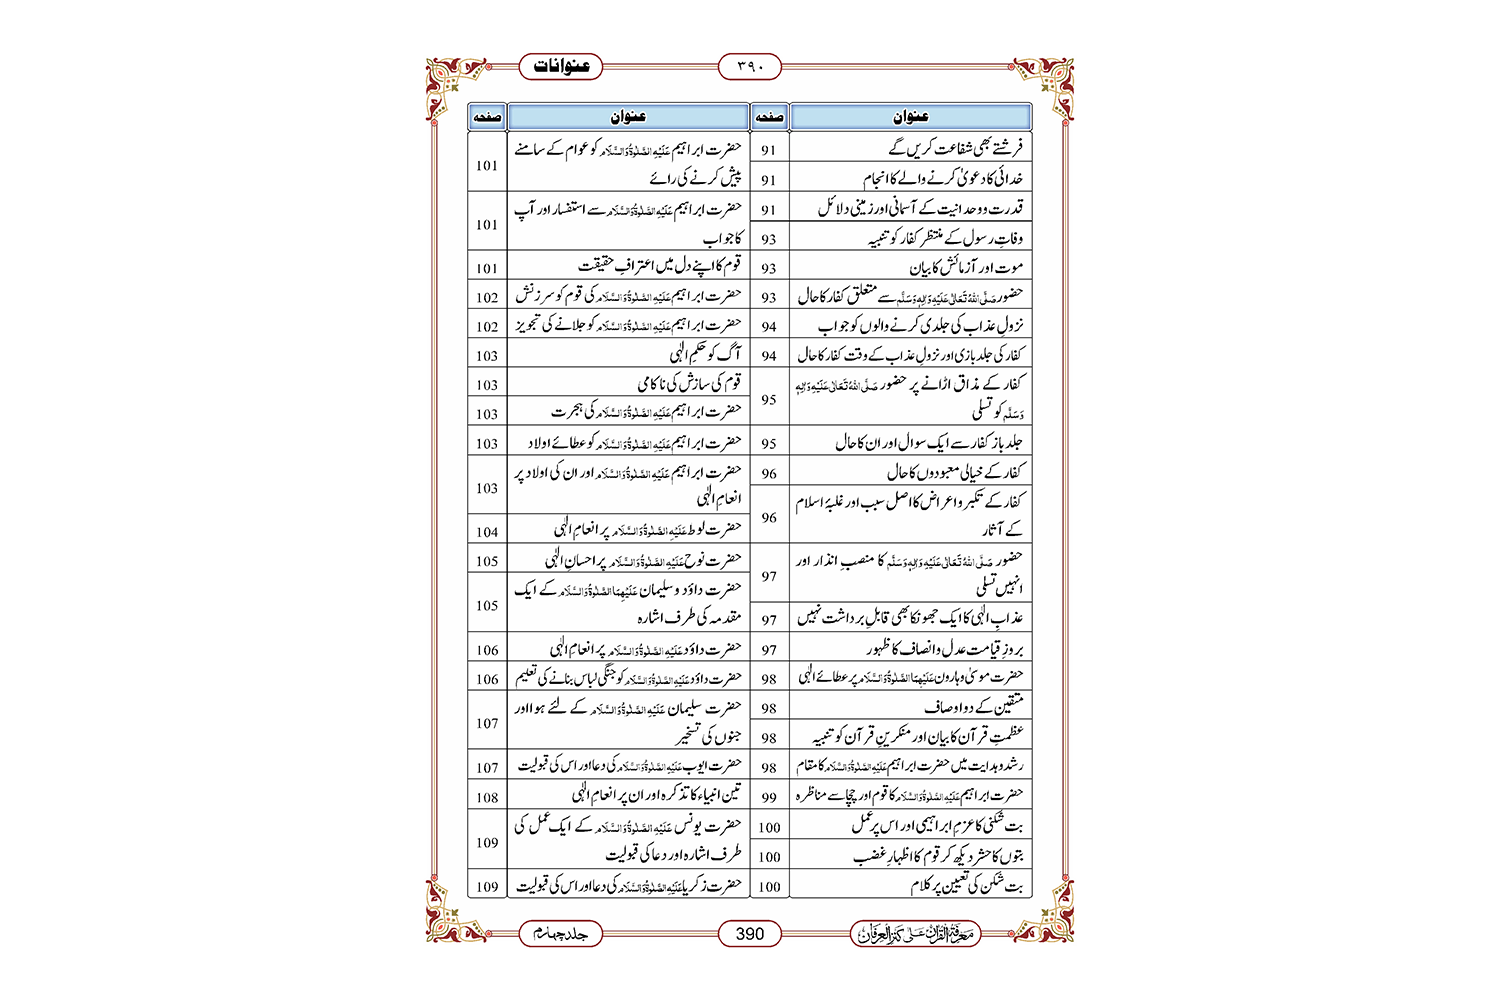 عنوانات
۳۹۰
عنوان صفحہ
فرشتے بھی شفاعت کریں گے 91
خدائی کا دعویٰ کرنے والے کا انجام 91
قدرت و وحدانیت کے آسمانی اور زمینی دلائل 91
وفاتِ رسول کے منتظر کفار کو تنبیہ 93
موت اور آزمائش کا بیان 93
حضور صَلَّی اللہُ تَعَالٰی عَلَیْہِ وَاٰلِہٖ وَسَلَّم سے متعلق کفار کا حال 93
نزولِ عذاب کی جلدی کرنے والوں کو جواب 94
کفار کی جلد بازی اور نزولِ عذاب کے وقت کفار کا حال 94
کفار کے مذاق اڑانے پر حضور صَلَّی اللہُ تَعَالٰی عَلَیْہِ وَاٰلِہٖ
وَسَلَّم کو تسلی 95
جلد باز کفار سے ایک سوال اور ان کا حال 95
کفار کے خیالی معبودوں کا حال 96
کفار کے تکبر و اعراض کا اصل سبب اور غلبۂ اسلام
کے آثار 96
حضور صَلَّی اللہُ تَعَالٰی عَلَیْہِ وَاٰلِہٖ وَسَلَّم کا منصبِ انذار اور
انہیں تسلی 97
عذابِ الٰہی کا ایک جھونکا بھی قابلِ برداشت نہیں 97
بروزِ قیامت عدل و انصاف کا ظہور 97
حضرت موسیٰ و ہارون عَلَیْہِمَا الصَّلٰوۃُ وَالسَّلَام پر عطائے الٰہی 98
متقین کے دو اوصاف 98
عظمتِ قرآن کا بیان اور منکرینِ قرآن کو تنبیہ 98
رشد و ہدایت میں حضرت ابراہیم عَلَیْہِ الصَّلٰوۃُ وَالسَّلَام کا مقام 98
حضرت ابراہیم عَلَیْہِ الصَّلٰوۃُ وَالسَّلَام کا قوم اور چچا سے مناظرہ 99
بت شکنی کا عزمِ ابراہیمی اور اس پر عمل 100
بتوں کا حشر دیکھ کر قوم کا اظہارِ غضب 100
بت شکن کی تعیین پر کلام 100
عنوان صفحہ
حضرت ابراہیم عَلَیْہِ الصَّلٰوۃُ وَالسَّلَام کو عوام کے سامنے
پیش کرنے کی رائے 101
حضرت ابراہیم عَلَیْہِ الصَّلٰوۃُ وَالسَّلَام سے استفسار اور آپ
کا جواب 101
قوم کا اپنے دل میں اعترافِ حقیقت 101
حضرت ابراہیم عَلَیْہِ الصَّلٰوۃُ وَالسَّلَام کی قوم کو سرزنش 102
حضرت ابراہیم عَلَیْہِ الصَّلٰوۃُ وَالسَّلَام کو جلانے کی تجویز 102
آگ کو حکمِ الٰہی 103
قوم کی سازش کی ناکامی 103
حضرت ابراہیم عَلَیْہِ الصَّلٰوۃُ وَالسَّلَام کی ہجرت 103
حضرت ابراہیم عَلَیْہِ الصَّلٰوۃُ وَالسَّلَام کو عطائے اولاد 103
حضرت ابراہیم عَلَیْہِ الصَّلٰوۃُ وَالسَّلَام اور ان کی اولاد پر
انعامِ الٰہی 103
حضرت لوط عَلَیْہِ الصَّلٰوۃُ وَالسَّلَام پر انعامِ الٰہی 104
حضرت نوح عَلَیْہِ الصَّلٰوۃُ وَالسَّلَام پر احسانِ الٰہی 105
حضرت داؤد و سلیمان عَلَیْہِمَا الصَّلٰوۃُ وَالسَّلَام کے ایک
مقدمہ کی طرف اشارہ 105
حضرت داؤد عَلَیْہِ الصَّلٰوۃُ وَالسَّلَام پر انعامِ الٰہی 106
حضرت داؤد عَلَیْہِ الصَّلٰوۃُ وَالسَّلَام کو جنگی لباس بنانے کی تعلیم 106
حضرت سلیمان عَلَیْہِ الصَّلٰوۃُ وَالسَّلَام کے لئے ہوا اور
جنوں کی تسخیر 107
حضرت ایوب عَلَیْہِ الصَّلٰوۃُ وَالسَّلَام کی دعا اور اس کی قبولیت 107
تین انبیاء کا تذکرہ اور ان پر انعامِ الٰہی 108
حضرت یونس عَلَیْہِ الصَّلٰوۃُ وَالسَّلَام کے ایک عمل کی
طرف اشارہ اور دعا کی قبولیت 109
حضرت زکریا عَلَیْہِ الصَّلٰوۃُ وَالسَّلَام کی دعا اور اس کی قبولیت 109
معرفۃ القرآن علٰی کنز العرفان
390
جلد چہارم